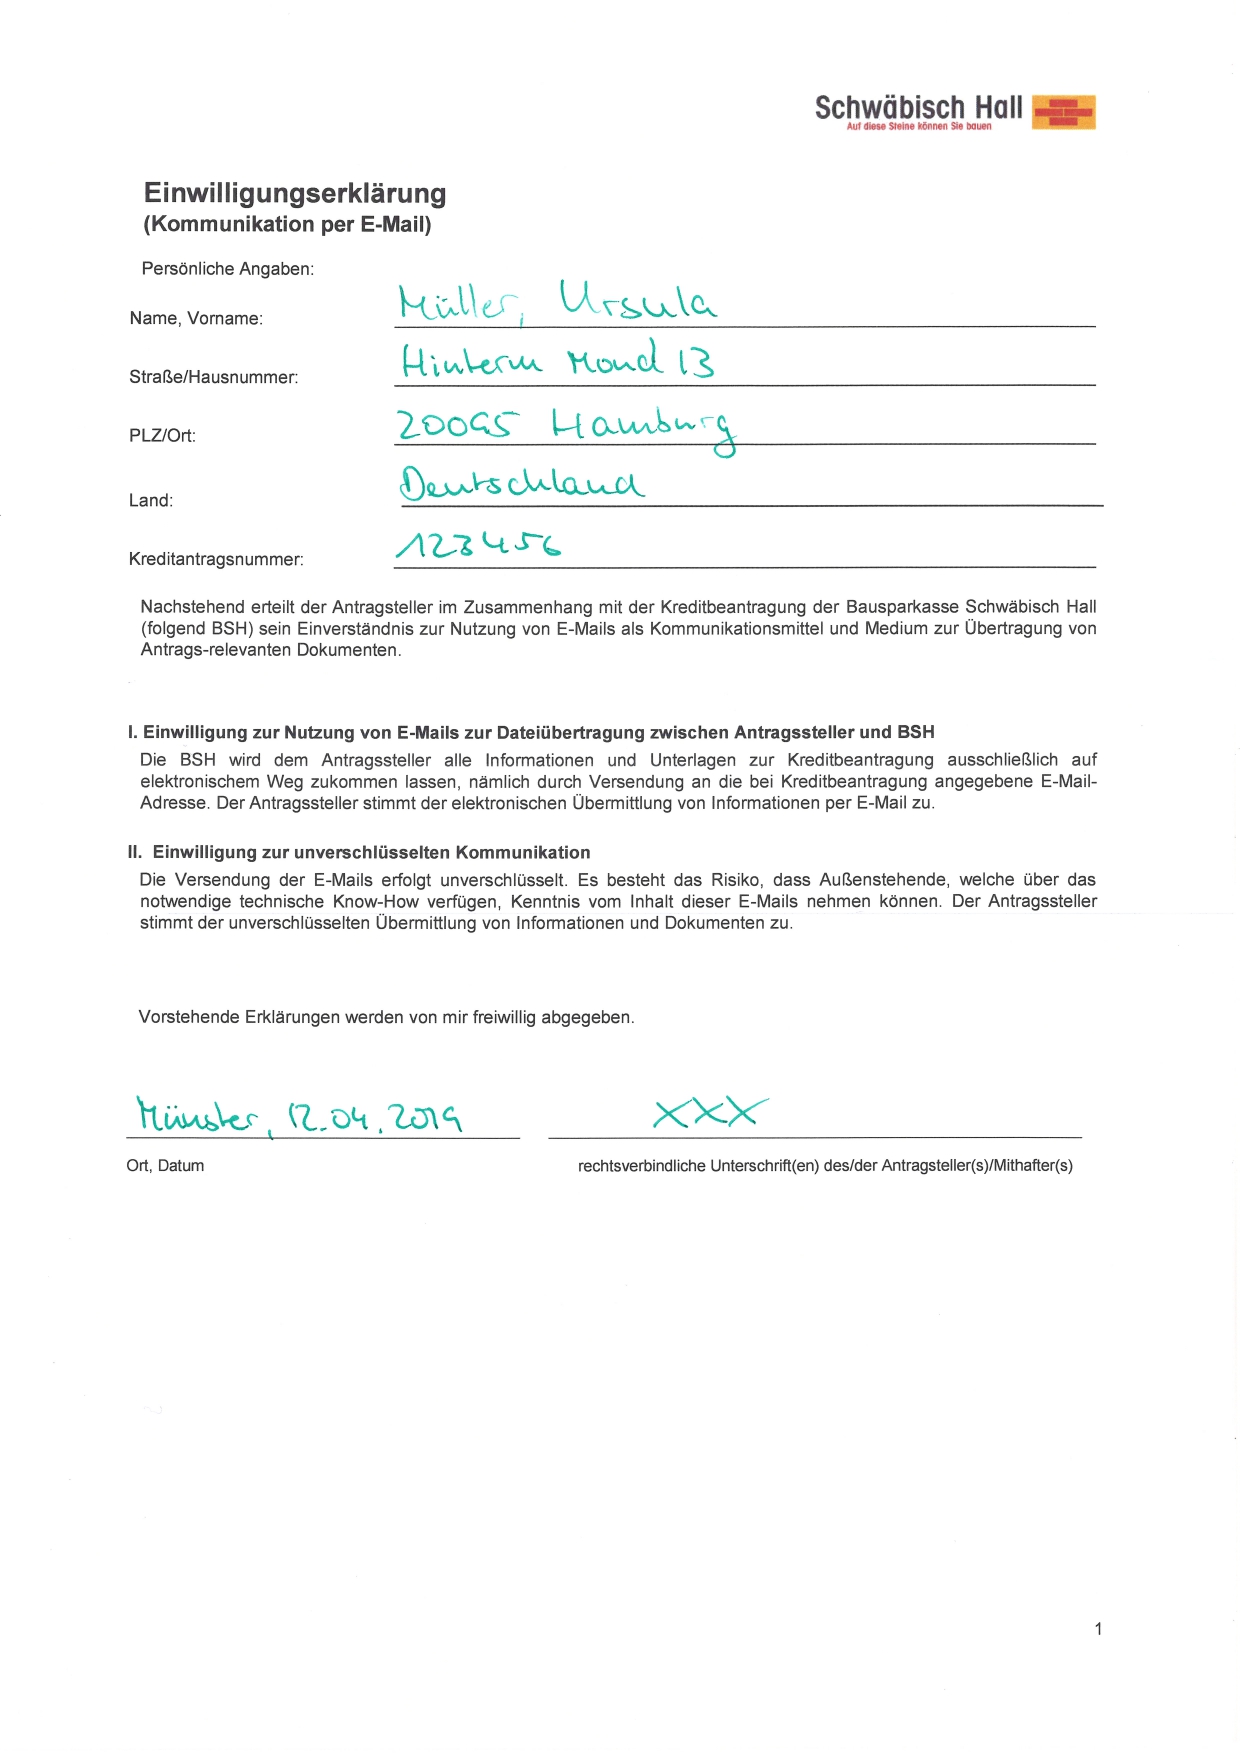 Schwäbisch Hall
Auf diese Steine können Sie bauen
Einwilligungserklärung
(Kommunikation per E-Mail)
Persönliche Angaben:
Name, Vorname: Müller, Ursula
Straße/Hausnummer: Hinterm Mond 13
PLZ/Ort: 20095 Hamburg
Land: Deutschland
Kreditantragsnummer: 123456
Nachstehend erteilt der Antragsteller im Zusammenhang mit der Kreditbeantragung der Bausparkasse Schwäbisch Hall
(folgend BSH) sein Einverständnis zur Nutzung von E-Mails als Kommunikationsmittel und Medium zur Übertragung von
Antrags-relevanten Dokumenten.
I. Einwilligung zur Nutzung von E-Mails zur Dateiübertragung zwischen Antragssteller und BSH
Die BSH wird dem Antragssteller alle Informationen und Unterlagen zur Kreditbeantragung ausschließlich auf
elektronischem Weg zukommen lassen, nämlich durch Versendung an die bei Kreditbeantragung angegebene E-Mail-
Adresse. Der Antragssteller stimmt der elektronischen Übermittlung von Informationen per E-Mail zu.
II. Einwilligung zur unverschlüsselten Kommunikation
Die Versendung der E-Mails erfolgt unverschlüsselt. Es besteht das Risiko, dass Außenstehende, welche über das
notwendige technische Know-How verfügen, Kenntnis vom Inhalt dieser E-Mails nehmen können. Der Antragssteller
stimmt der unverschlüsselten Übermittlung von Informationen und Dokumenten zu.
Vorstehende Erklärungen werden von mir freiwillig abgegeben.
Münster, 12.04.2019 XXX
Ort, Datum rechtsverbindliche Unterschrift(en) des/der Antragsteller(s)/Mithafter(s)
1